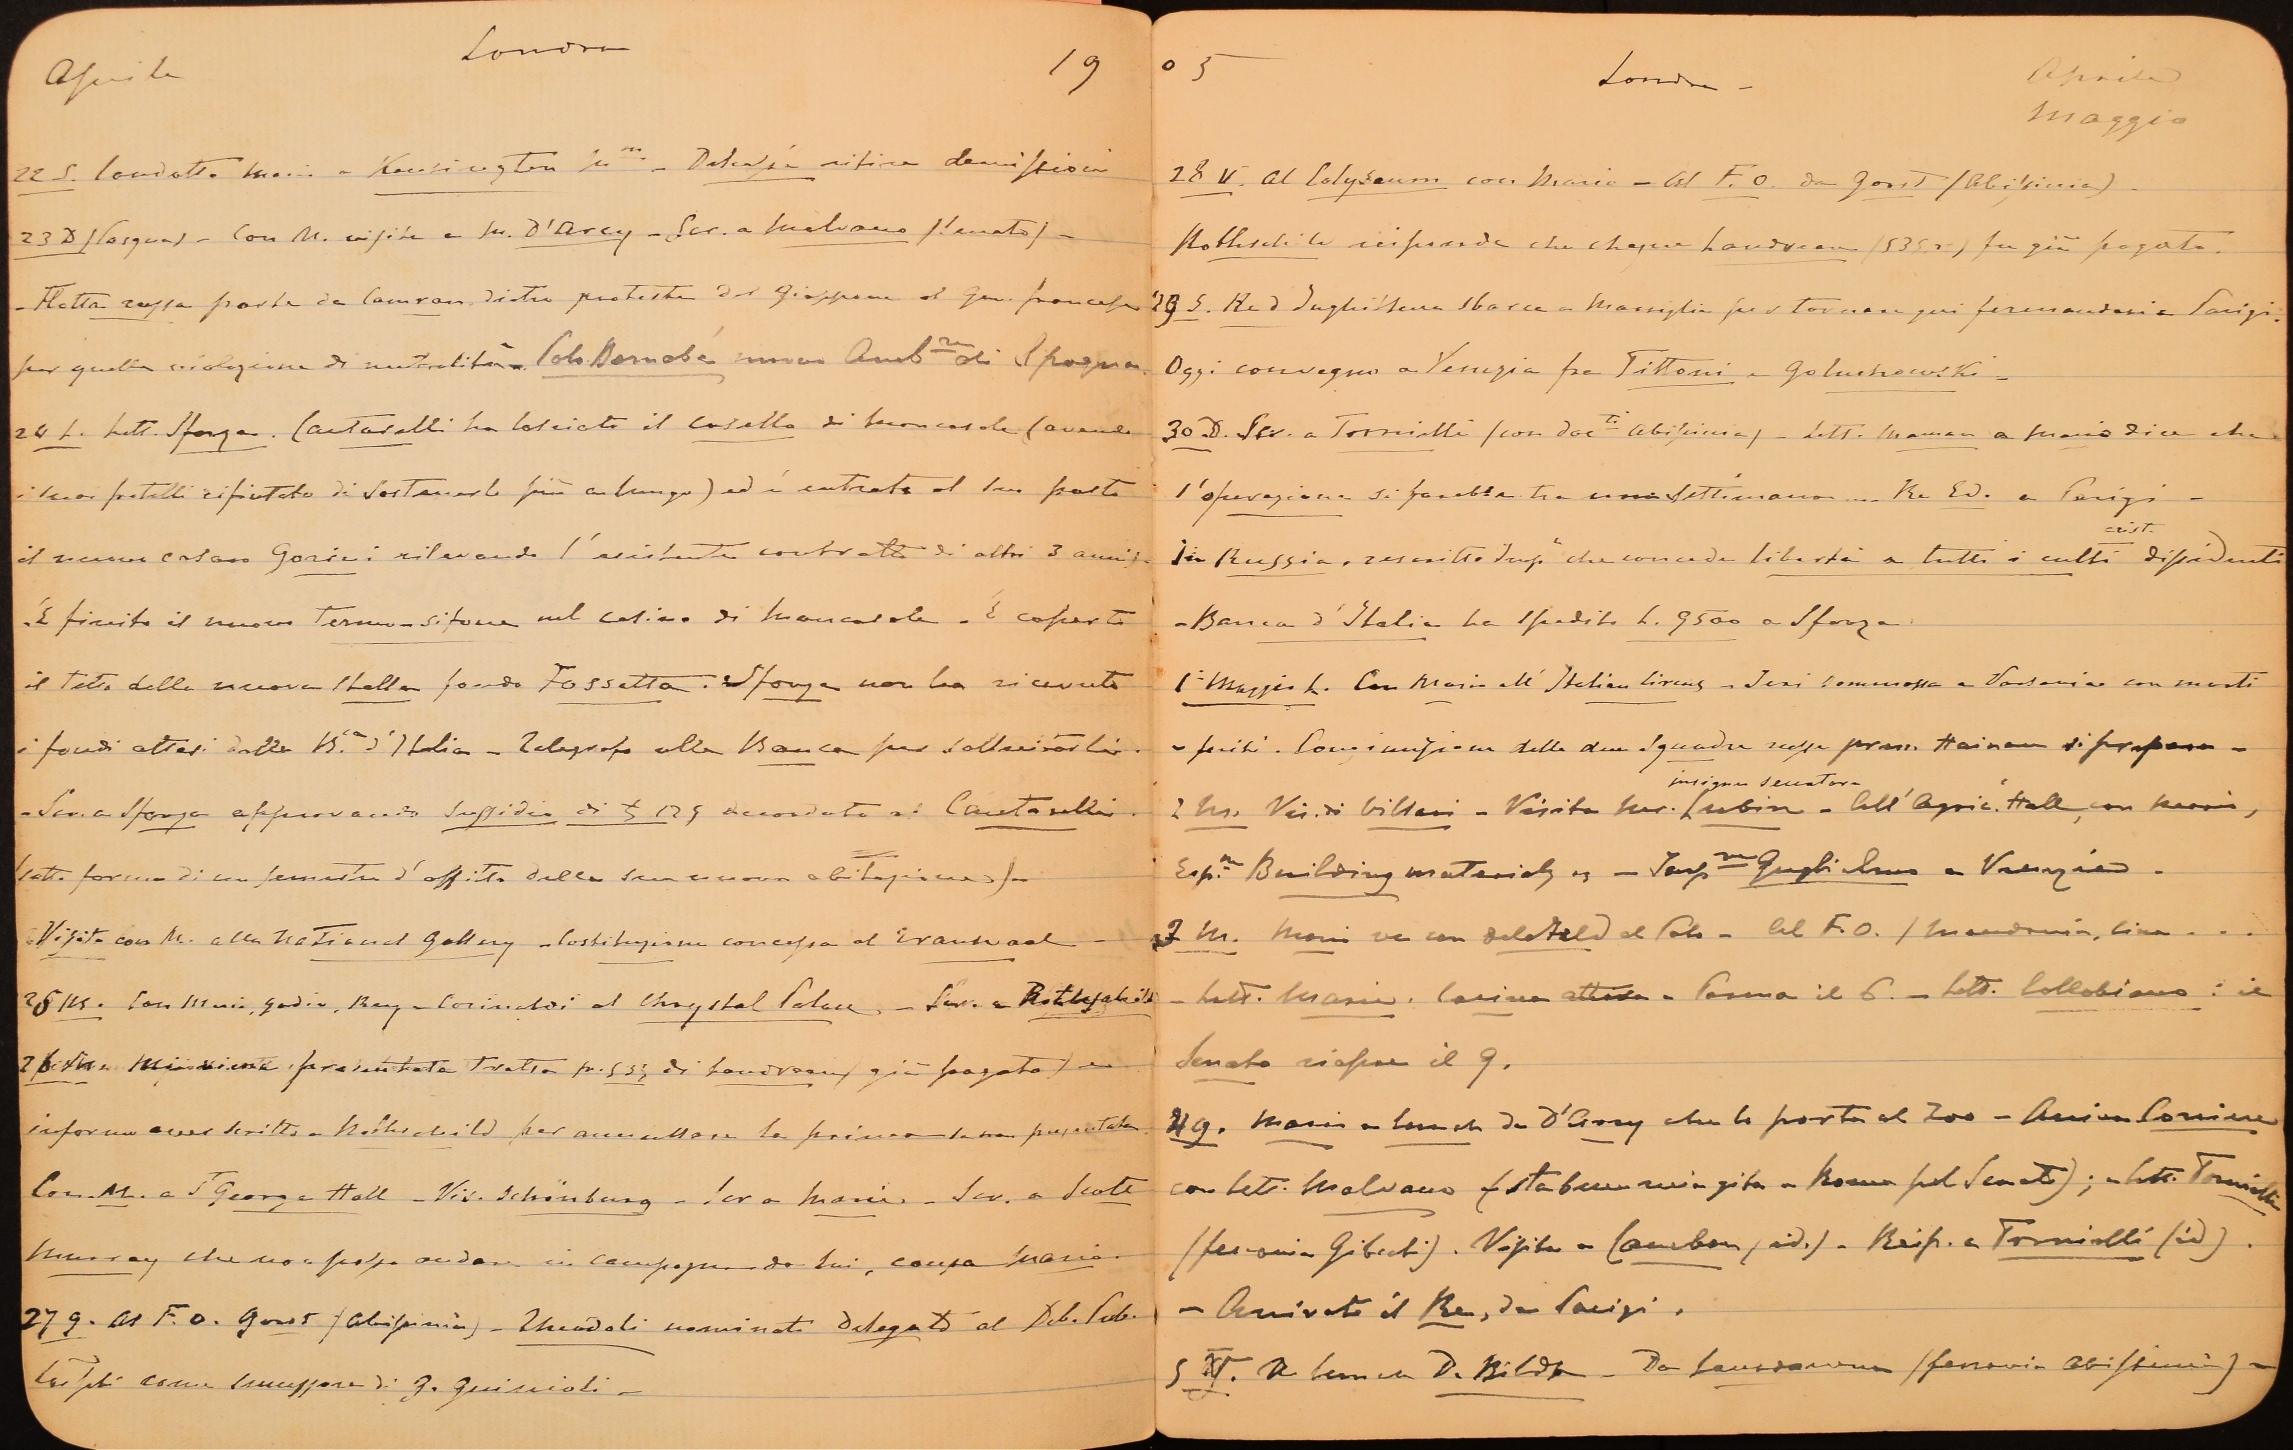 Aprile
Londra
19
22 S. Condotto Mario a Kensington - Delcassé ritira demissioni
23 D (Pasqua) - Con M. visita a M. D'Arcy - Scr. a Malvano (Senato) -
- Flotta russa parte da Camran dietro proteste del Giappone al Gov. francese
per quella violazione di neutralità - Polo Bernabé nuovo Amb.re di Spagna.
24 L. Lett. Sforza. (Cantarelli ha lasciato il casello di Moncasale (avendo
i suoi fratelli rifiutato di sostenerlo più a lungo) ed è entrato al suo posto
il nuovo casaro Gorini rilevando l'esistente contratto di altri 3 anni).
È finito il nuovo Termo-sifone nel casino di Moncasale - È coperto
il tetto della nuova stalla fondo Fossetta. Sforza non ha ricevuto
i fondi attesi dalla B.ca d'Italia - Telegrafo alla Banca per sollecitarli.
- Scr. a Sforza approvando sussidio di £ 125 accordato al Cantarelli
sotto forma di un semestre d'affitto della sua nuova abitazione) -
Visita con M. alla National Gallery - Costituzione concessa al Transvaal -
25 M. Con Mario, Corinaldi al Chrystal Palace - Scr. a Rothschild
26 presentata tratta fr. 535 di Landreau (già pagata)
informo aver scritto a Rothschild per annullare la prima se non presentata
Con M. a St George Hall - Vis. Schönburg - Scr a Mario - Scr. a Scott
Murray che non posso andare in campagna da lui, causa Mario.
27 G. Al F. O. Gorst (Abissinia) - Theodoli nominato Delegato al Deb. Pub.
come successore di G. Guiccioli -
05
Londra -
Aprile
Maggio
28 V. Al Colyseum con Mario - Al F. O. da Gorst (Abissinia) -
Rothschild risponde che cheque Landreau (535 ) fu già pagato.
29 S. Re d'Inghilterra sbarca a Marsiglia per tornare qui fermandosi a Parigi.
Oggi convegno a Venezia fra Tittoni e Goluchowski -
30 D. Scr. a Tornielli (con doc.ti Abissinia) - Lett. Maman a Mario dice che
l'operazione si farebbe tra una settimana - Re Ed. a Parigi -
In Russia, rescritto Imp. che concede libertà a tutti i culti crist. dissidenti
- Banca d'Italia ha spedito L. 9500 a Sforza.
1° Maggio L. Con Mario all'Italian Circus - Ieri sommossa a Varsavia con morti
e feriti. Congiunzione delle due squadre russe presso Hainan si prepara -
insigne senatore
2 M. Vis. di Villari - Visita Mr. Lubin - All'Agric. Hall, con Mario,
Esp.ne Building materials - Imp.re Guglielmo a Venezia -
3 M. Mario va con al Polo - Al F. O. /
- Lett. Maria. attesa a Parma il 6. - Lett. Collobiano : il
Senato riapre il 9.
4 G. Mario a lunch da D'Arcy che lo porta al Zoo - Arriva Corriere
con lett. Malvano (sta bene mia gita a Roma pel Senato) ; e lett. Tornielli
(ferrovia Gibuti). Visita a Cambon (id.) - Risp. a Tornielli (id).
- Arrivato il Re, da Parigi.
5 V. A lunch D. Bildt - Da Lansdowne (ferrovia abissinia) -